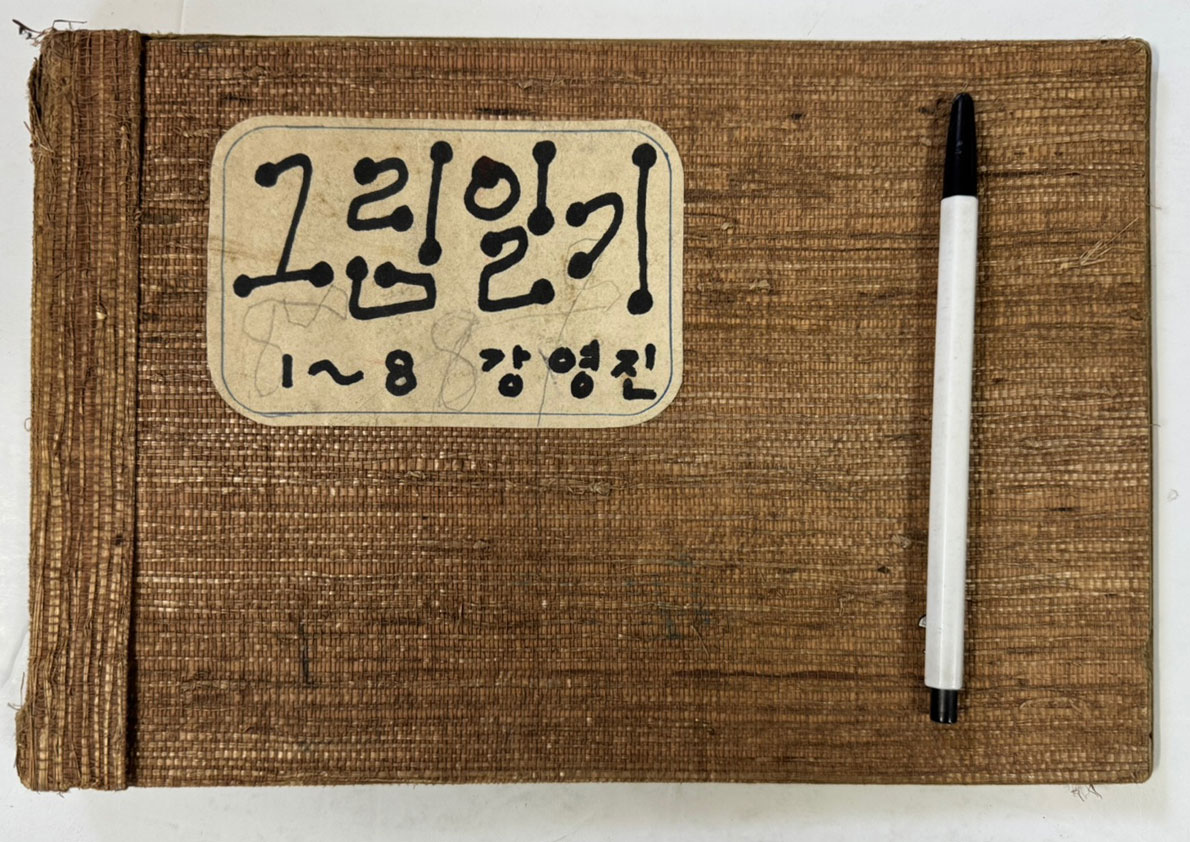 그림일기
1~8 강영진